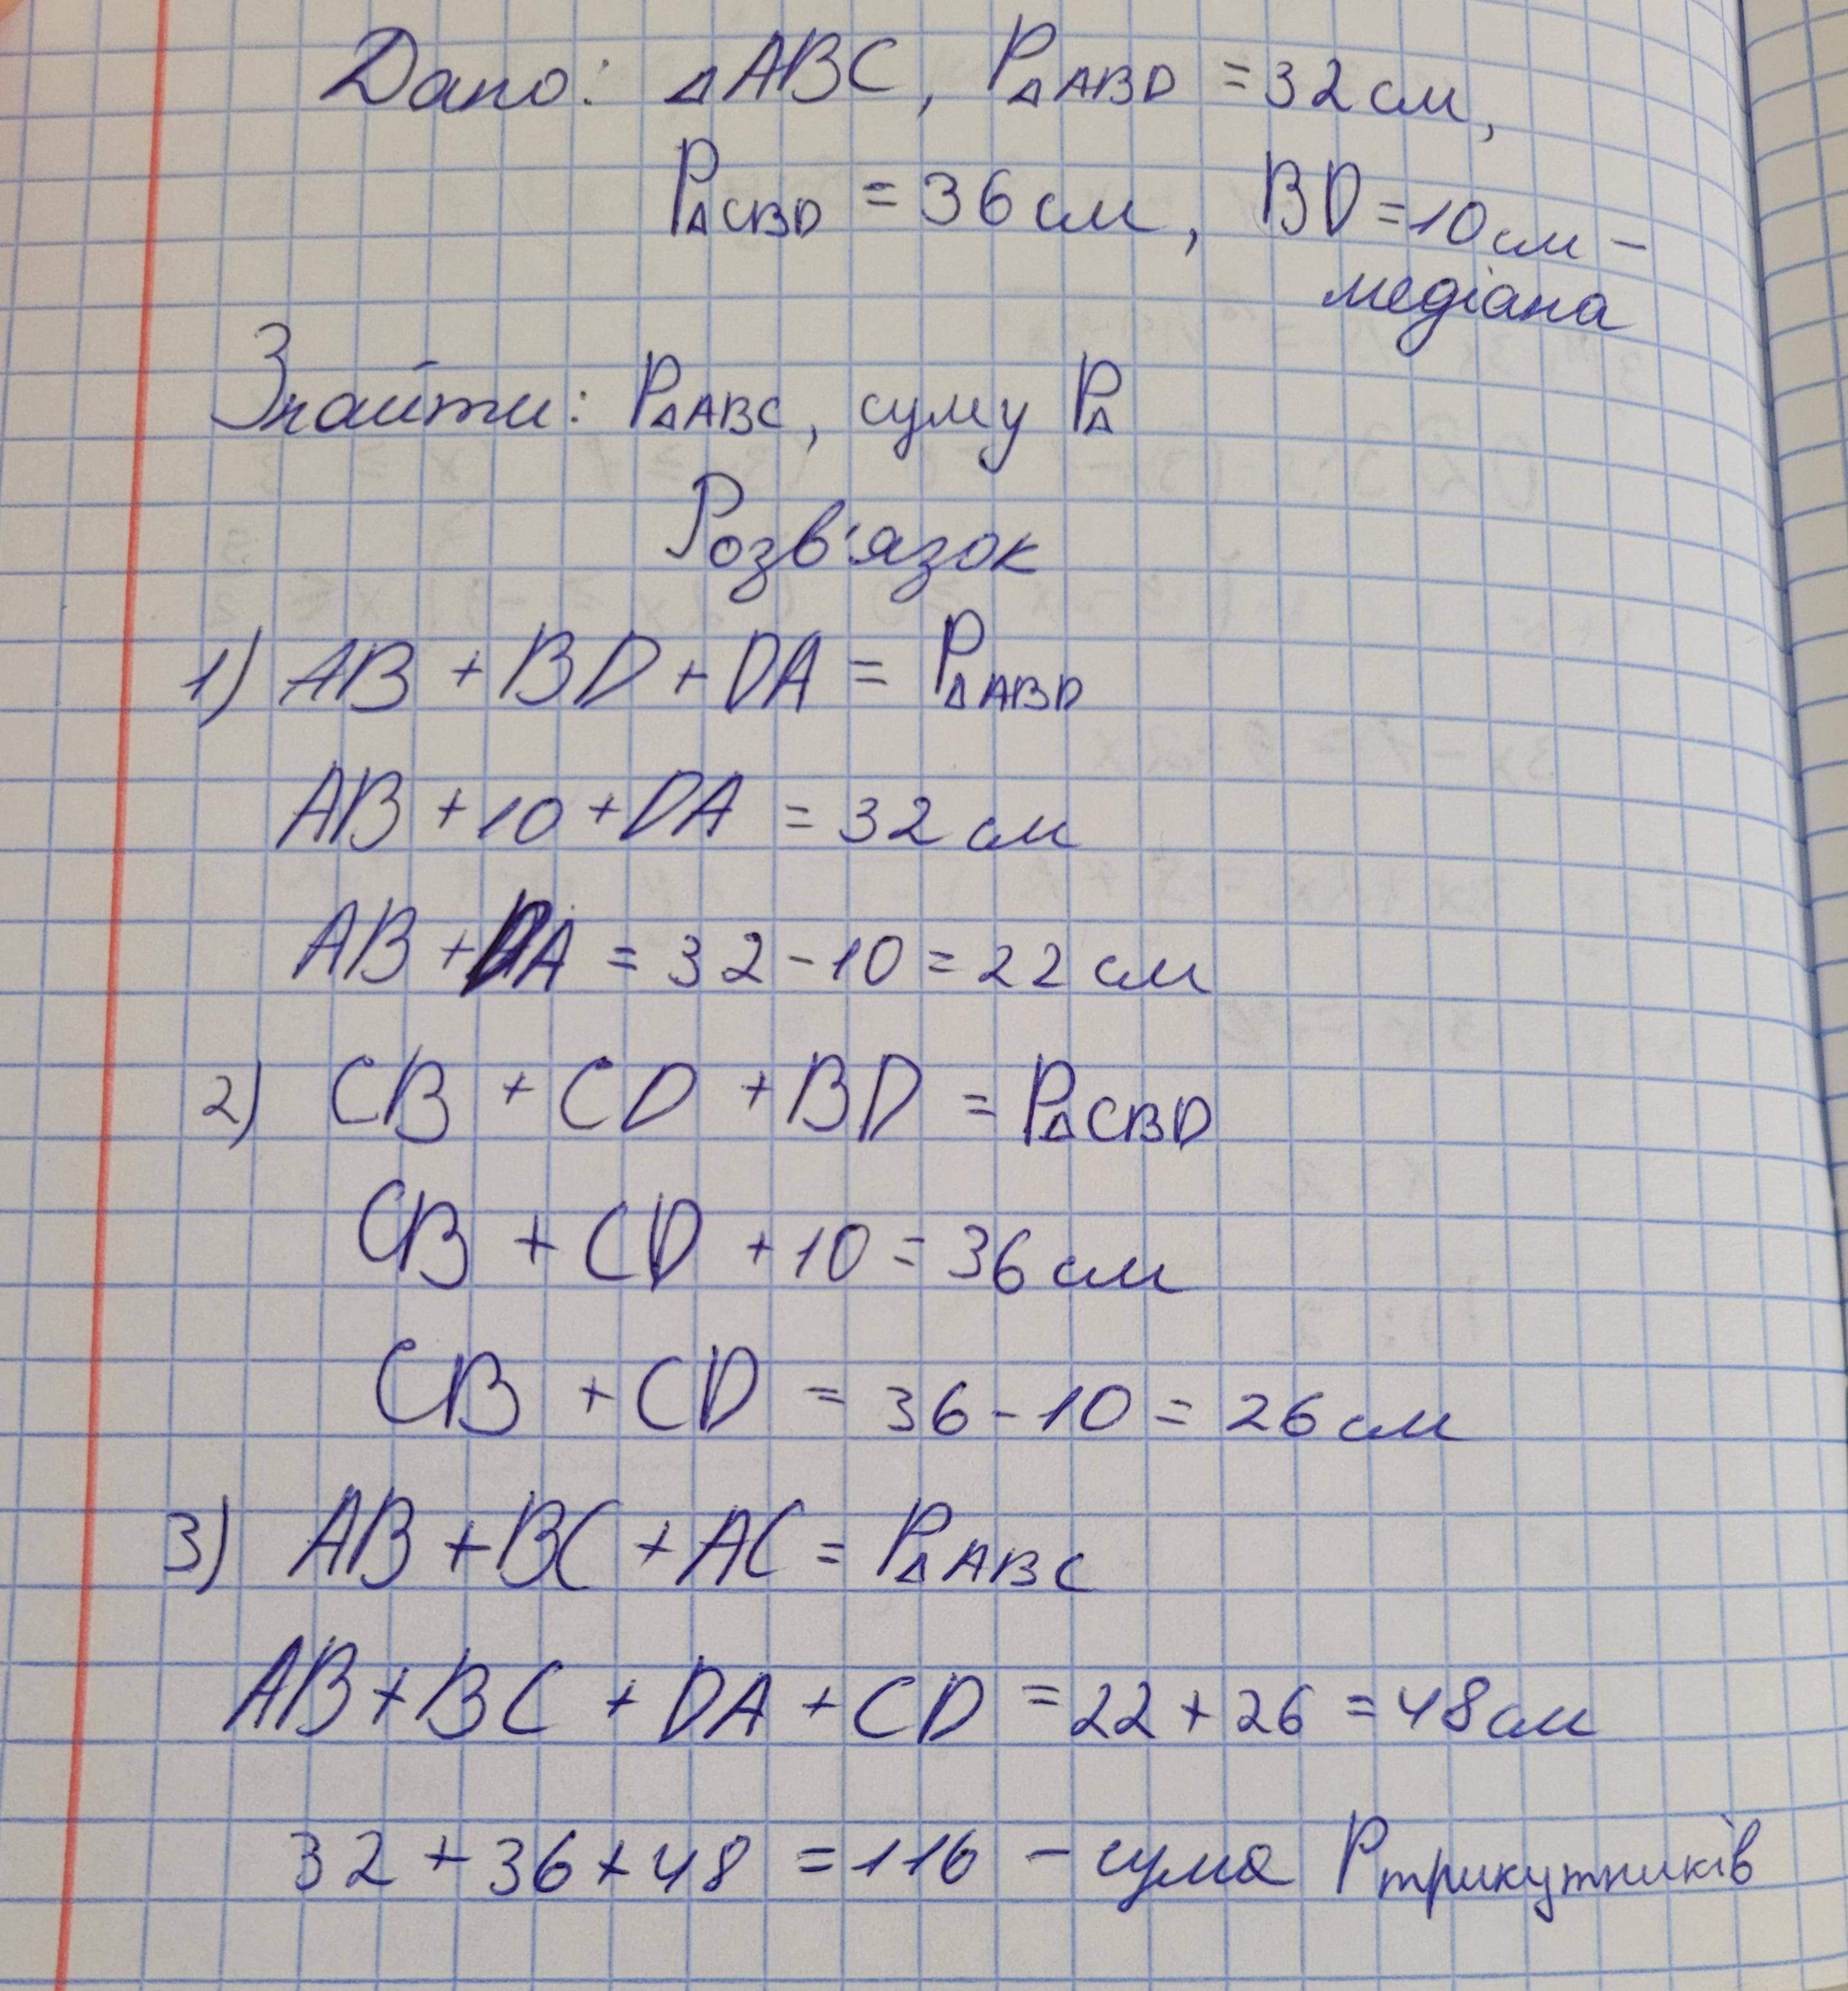 Дано: △ABC, P△ABD = 32 см,
P△CBD = 36 см, BD = 10 см –
медіана
Знайти: P△ABC, суму P△
Розв'язок
1) AB + BD + DA = P△ABD
AB + 10 + DA = 32 см
AB + DA = 32 - 10 = 22 см
2) CB + CD + BD = P△CBD
CB + CD + 10 = 36 см
CB + CD = 36 - 10 = 26 см
3) AB + BC + AC = P△ABC
AB + BC + DA + CD = 22 + 26 = 48 см
32 + 36 + 48 = 116 – сума Pтрикутників